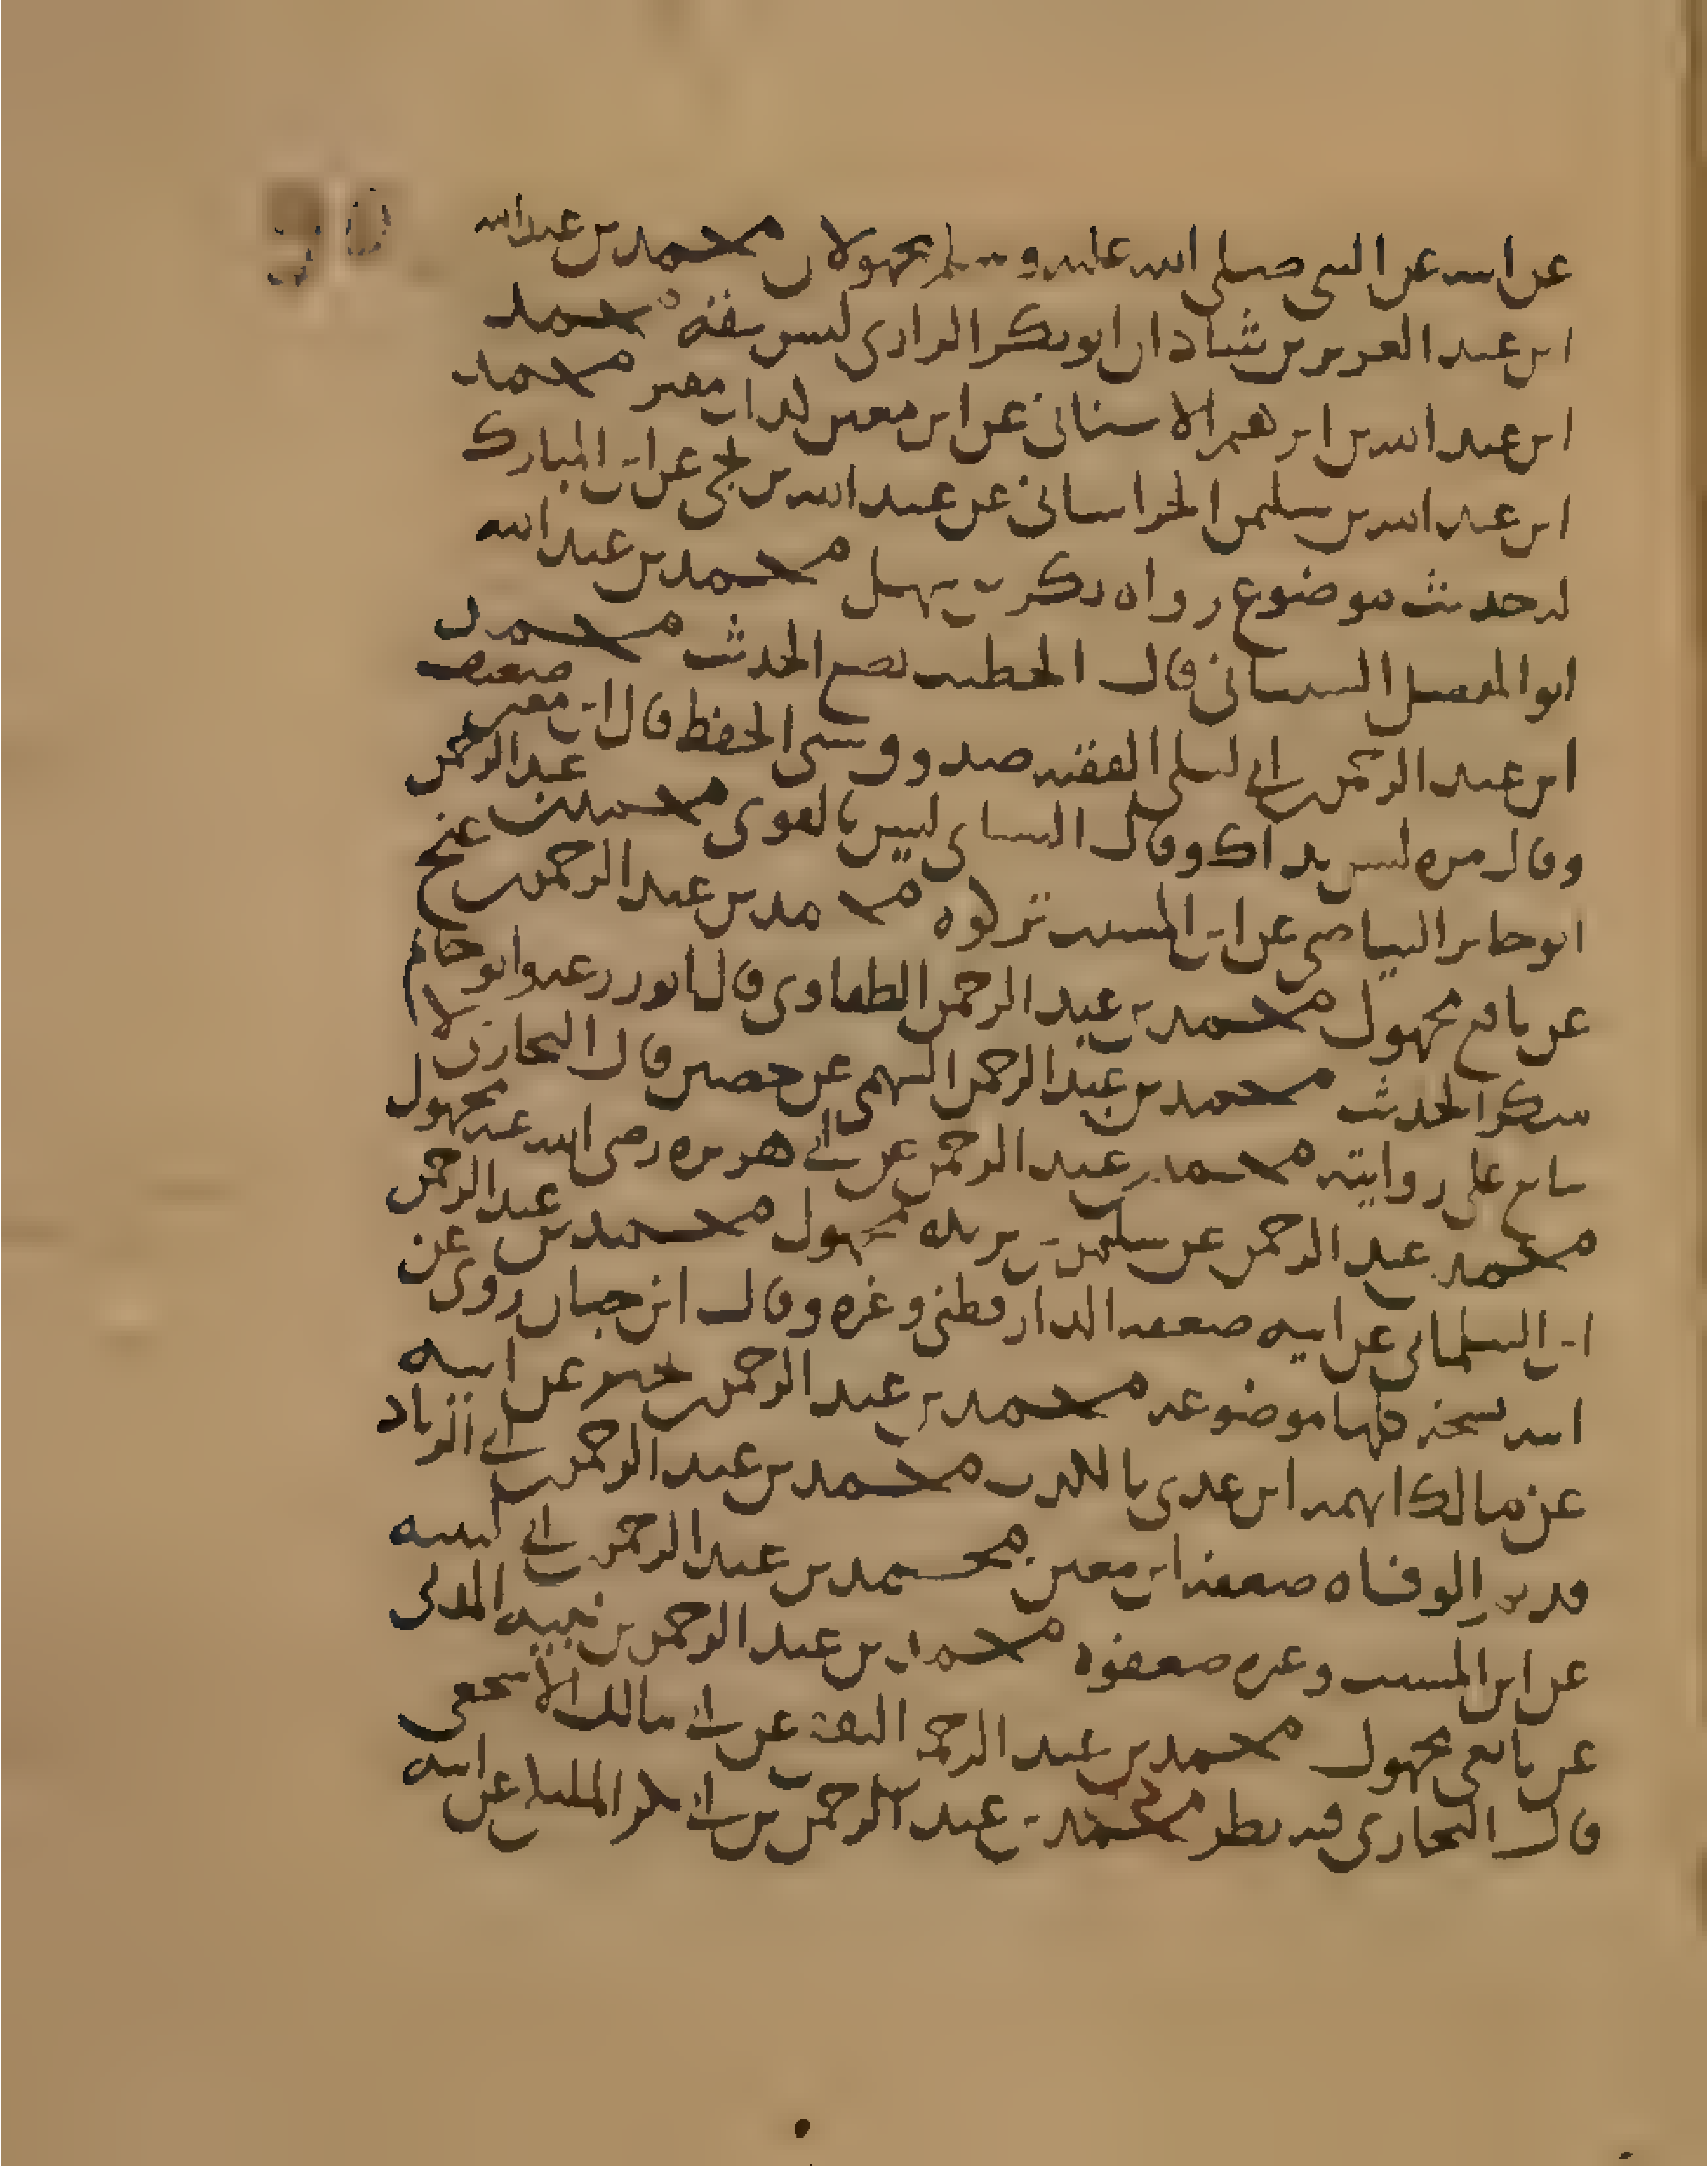 عن ابيه عن النبي صلى الله عليه وسلم مجهولان محمد بن عبد الله
ابن عبد العزيز بن شاذان ابو بكر الرازي ليس بثقة محمد
ابن عبد الله بن ابرهيم الاشناني عن ابن معين كذاب معتر محمد
ابن عبد الله بن سليمن الخراساني عن عبد الله بن يحيى عن ابن المبارك
له حديث موضوع رواه ذكر بن سهل محمد بن عبد الله
ابو المفضل الشيباني قال الخطيب يضع الحديث محمد
ابن عبد الرحمن بن ابي ليلى الفقيه صدوق سيئ الحفظ قال ابن معين ضعيف
وقال مره ليس بذاك وقال النسائي ليس بالقوي محمد بن عبد الرحمن
ابو جابر البياضي عن ابن المسيب تركوه محمد بن عبد الرحمن بن عنج
عن نافع مجهول محمد بن عبد الرحمن الطفاوي قال ابو زرعه وابو حاتم
منكر الحديث محمد بن عبد الرحمن السهمي عن حصين قال البخاري لا
يتابع على روايته محمد بن عبد الرحمن عن ابي هريره رضي الله عنه مجهول
محمد بن عبد الرحمن عن سليمن بن بريده مجهول محمد بن عبد الرحمن
ابن البيلماني عن ابيه ضعفه الدارقطني وغيره وقال ابن حبان روى عن
ابيه نسخة كلها موضوعه محمد بن عبد الرحمن بن بحير عن ابيه
عن مالك اتهمه ابن عدي بالكذب محمد بن عبد الرحمن بن ابي الزناد
قديم الوفاه ضعفه ابن معين محمد بن عبد الرحمن بن ابي لبيبه
عن ابن المسيب وغيره ضعفوه محمد بن عبد الرحمن بن نبيه المدني
عن نافع مجهول محمد بن عبد الرحمن عن ابي مالك الاشجعي
قال البخاري فيه نظر محمد بن عبد الرحمن بن ابي بكر المليكي عن ابيه